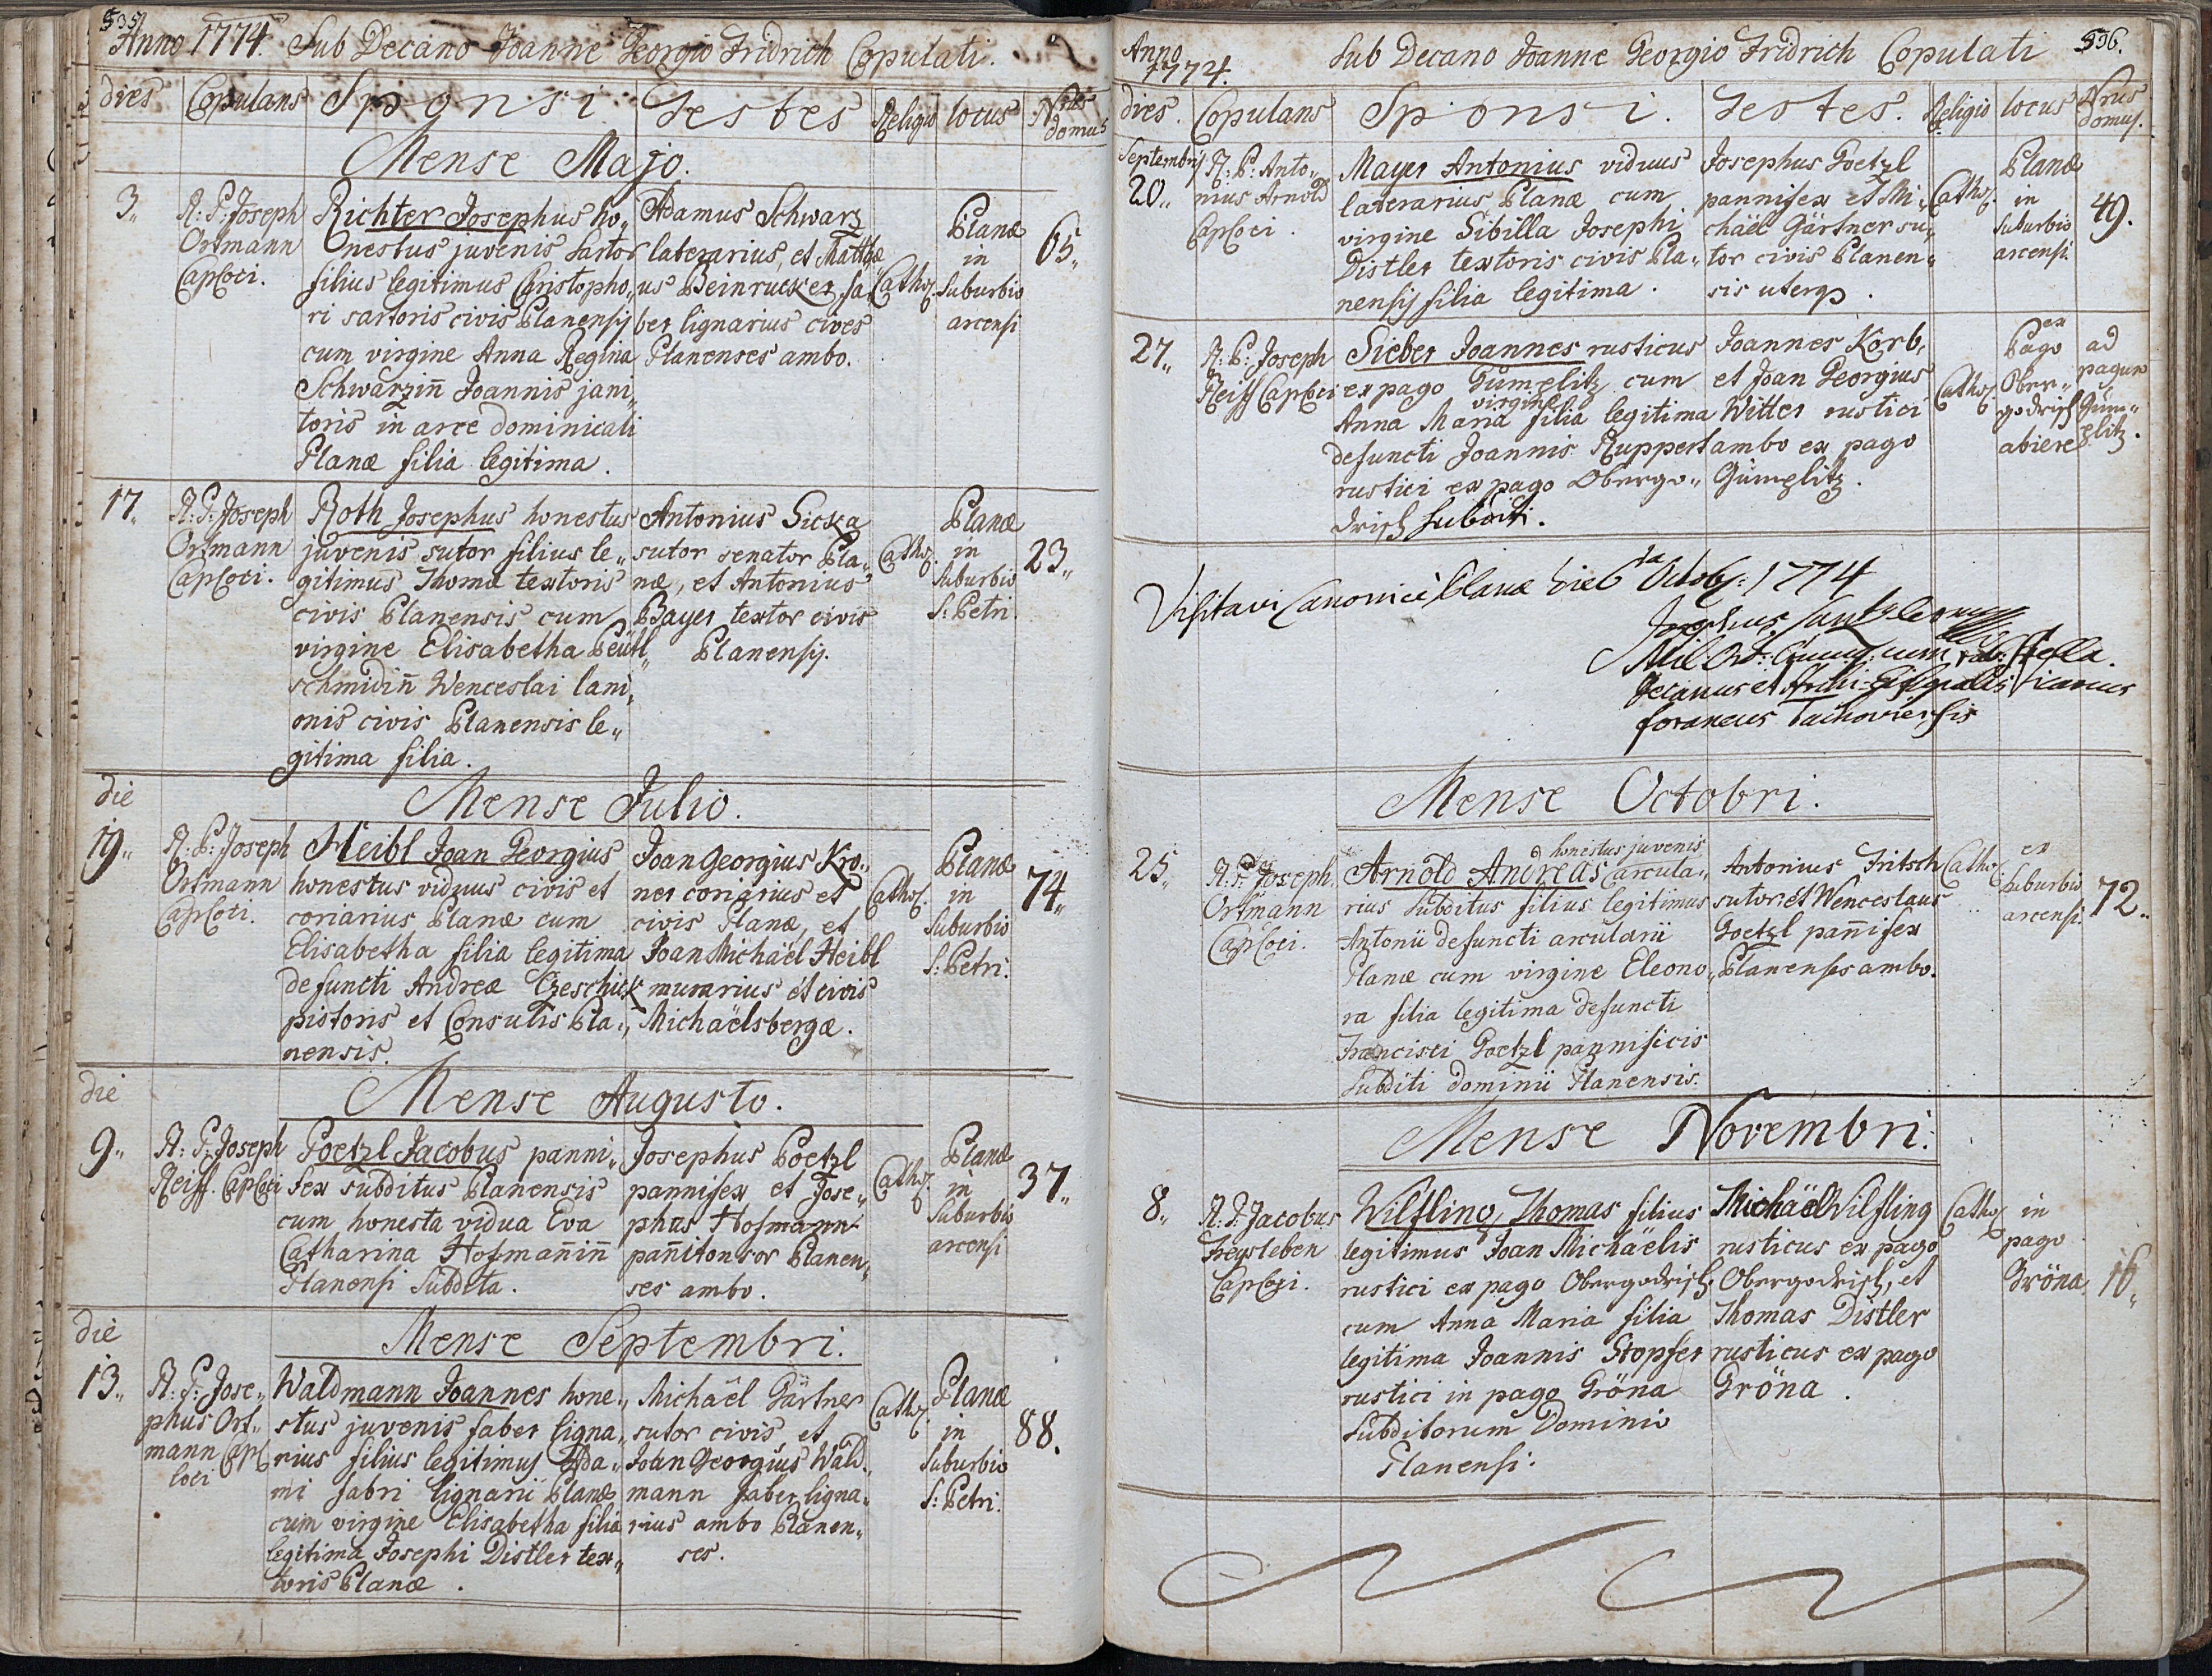 535
Anno 1774. Sub Decano Joanne Georgio Fridrich Copulati.
dies Copulans Sponsi Testes Religio locus Nrus domus
Mense Majo.
3,, R: P: Joseph Ortmann Cap: loci.
Richter Josephus ho,,
Onestus juvenis sartor
filius legitimus Christopho,,
ri sartoris civis Planensis
cum virgine Anna Regina
Schwarzin̄ Joannis jani,,
toris in arce dominicali
Planæ filia legitima.
Adamus Schwarz
laterarius, et Matthæ
us Beinrucker fa,,
ber lignarius cives
Planenses ambo.
Cathol.
Planæ
in
suburbio
arcensi
65,,
17,, R: P: Joseph
Ortmann
Cap: loci.
Roth Josephus honestus
juvenis sutor filius le,,
gitimus Thomæ textoris
civis Planensis cum
virgine Elisabetha
schmidin̄ Wenceslai lani,,
onis civis Planensis le,,
gitima filia.
Antonius Sicka
sutor senator Pla,,
næ, et Antonius
Bayer textor civis
Planensis.
Cathol.
Planæ
in
suburbio
S: Petri.
23,,
die
Mense Julio.
19,, R: P: Joseph
Ortmann
Cap: loci.
Heibl Joan Georgius
honestus viduus civis et
coriarius Planæ cum
Elisabetha filia legitima
defuncti Andreæ Czeschick
pistoris et Consulis Pla,,
nensis.
Joan Georgius Kro,,
ner coriarius et
civis Planæ, et
Joan Michaël Heibl
murarius et civis
Michaëlsbergæ.
Cathol.
Planæ
in
suburbio
S: Petri.
74,,
die
Mense Augusto.
9,, R: P: Joseph
Reiff. Cap: loci
Poetzl Jacobus panni,,
fex subditus Planensis
cum honesta vidua Eva
Catharina Hofman̄in̄
Planensi Subdita.
Josephus Poetzl
pannifex et Jose,,
phus Hofmann
pan̄itonsor Planen,,
ses ambo.
Cathol.
Planæ
in
suburbio
arcensi
37,,
die
Mense Septembri.
13,, R: P: Jose,,
phus Ort,,
mann Cap:
loci
Waldmann Joannes hone,,
stus juvenis faber ligna,,
rius filius legitimus Ada,,
mi fabri lignarii Planæ
cum virgine Elisabetha filia
legitima Josephi Distler tex,,
toris Planæ.
Michaël Gärtner
sutor civis, et
Joan Georgius Wald,,
mann faber ligna,,
rius ambo Planen,,
ses.
Cathol.
Planæ
in
suburbio
S: Petri.
88.
Anno
1774. Sub Decano Joanne Georgio Fridrich Copulati 536.
dies. Copulans Sponsi. Testes. Religio locus Nrus domus.
Septembris
20,, R: P: Anto,,
nius Arnold
Cap: loci.
Mayer Antonius viduus
laterarius Planæ cum
virgine Sibilla Josephi
Distler textoris civis Pla,,
nensis filia legitima.
Josephus Goetzl
pannifex et Mi,,
chäel Gärtner su,,
tor civis Planen,,
sis uterq.
Cathol.
Planæ
in
suburbio
arcensi.
49.
27,, R: P: Joseph
Reiff Cap: loci
Sieber Joannes rusticus
ex pago Gümplitz cum
virgine
Anna Maria filia legitima
defuncti Joannis Ruppert
rustici ex pago Obergo,,
drisch subditi.
Joannes Korb,
et Joan Georgius
Witter rustici
ambo ex pago
Gümplitz.
Cathol.
ex
Pago
Ober,,
godrisch
abiere
ad
pagum
Güm,,
plitz.
Visitavi Canonicè Planæ die 6ta Octob: 1774
Decanus et Archi-Eppalis Vicarius
foraneus Tachoviensis
Mense Octobri.
25,, R: P: Joseph.
Ortmann
Cap: loci.
honestus juvenis
Arnold Andreas arcula,,
rius subditus filius legitimus
Antonii defuncti arcularii
Planæ cum virgine Eleono,,
ra filia legitima defuncti
Francisci Goetzl pannificis
subditi dominii Planensis.
Antonius Fritsch
sutor: et Wenceslaus
Goetzl pan̄ifex
Planenses ambo.
Cathol.
ex
suburbio
arcensi.
72,,
Mense Novembri.
8,, R: P: Jacobus
Freysleben
Cap: loci.
Wilfling Thomas filius
legitimus Joan Michaëlis
rustici ex pago Obergodrisch,
cum Anna Maria filia
legitima Joannis Stopfer
rustici in pago Gröna
subditorum Dominio
Planensi.
Michäel Wilfling
rusticus ex pago
Obergodrisch, et
Thomas Distler
rusticus ex pago
Gröna.
Cathol
in
pago
Gröna
16,,